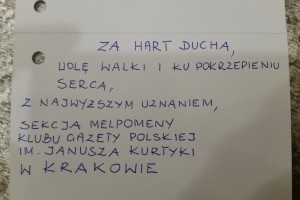 ZA HART DUCHA,
WOLĘ WALKI I KU POKRZEPIENIU
SERCA,
Z NAJWYŻSZYM UZNANIEM,
SEKCJA MELPOMENY
KLUBU GAZETY POLSKIEJ
IM. JANUSZA KURTYKI
W KRAKOWIE